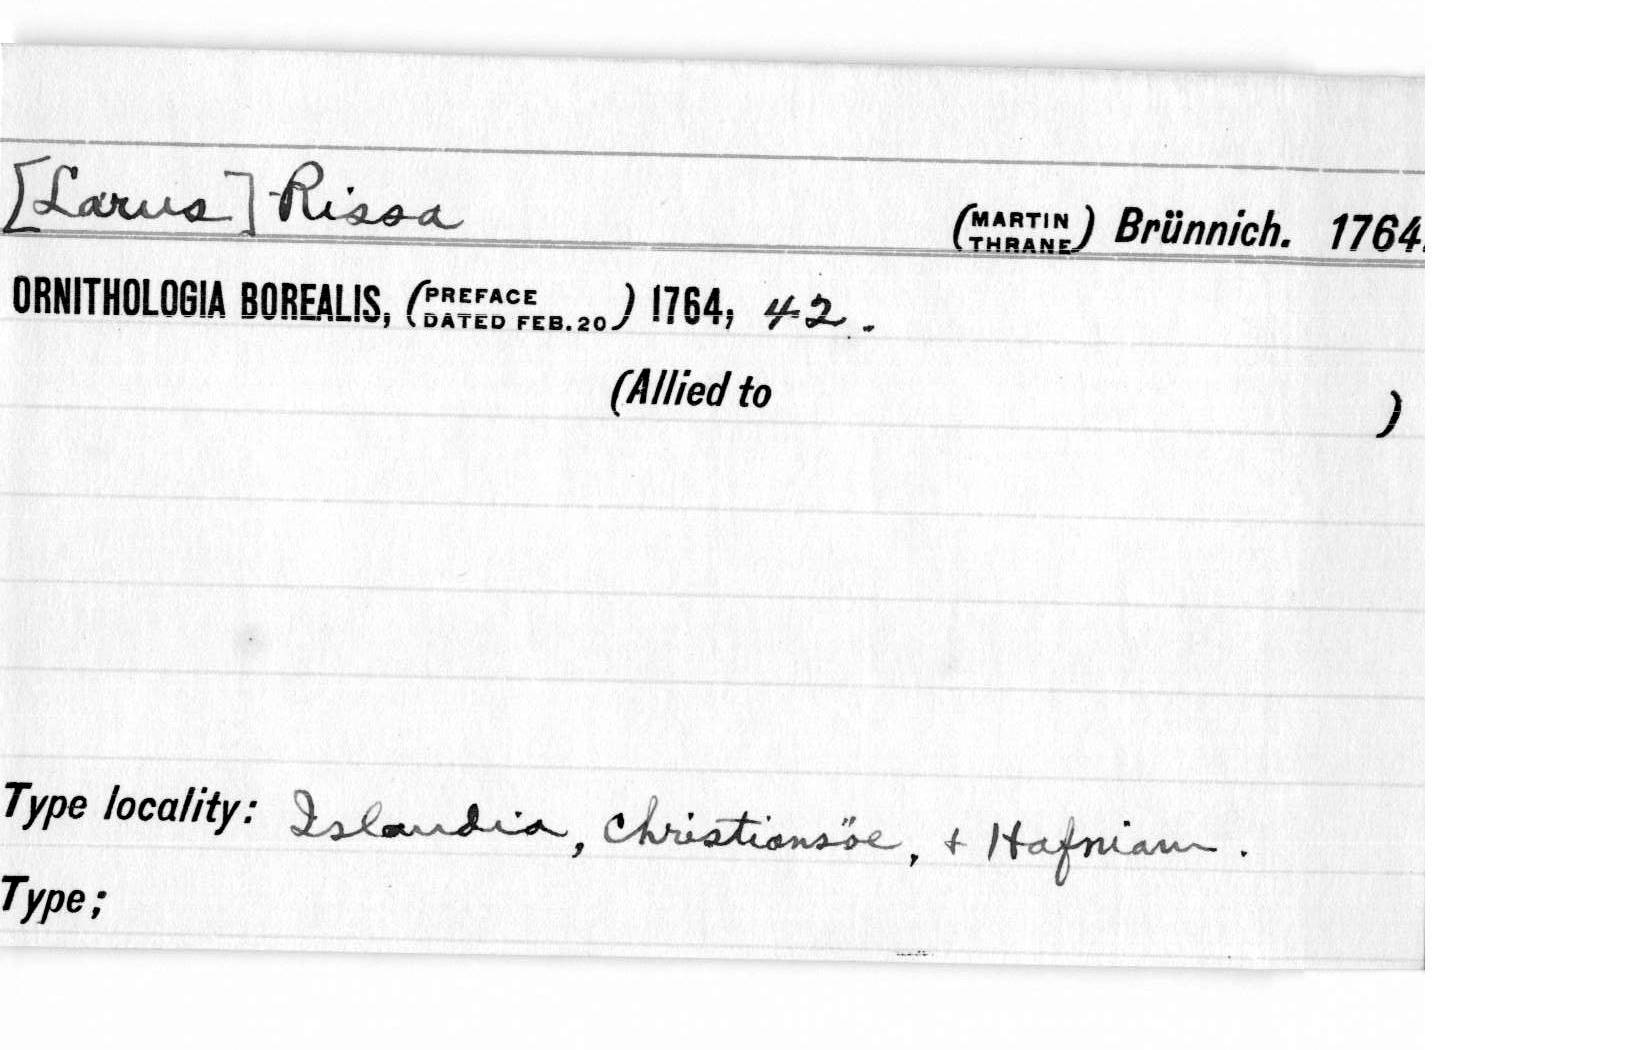 [Larus] Rissa (MARTIN THRANE) Brünnich. 1764.
ORNITHOLOGIA BOREALIS, (PREFACE DATED FEB. 20) 1764, 42.
(Allied to )
Type locality: Islandia, Christiansöe, + Hafniam.
Type;